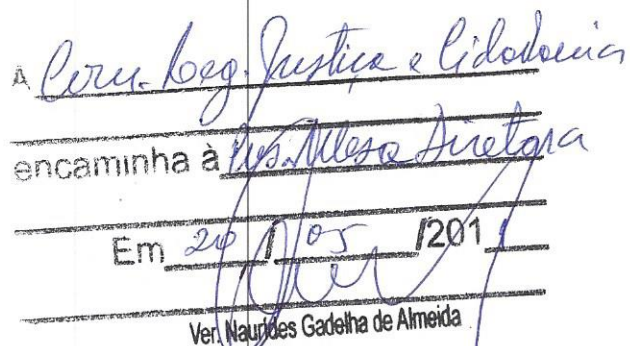 A Com. Leg. Justiça e Cidadania
encaminha à Mesa Diretora
Em 20 / 05 /2011
Ver. Naurides Gadelha de Almeida